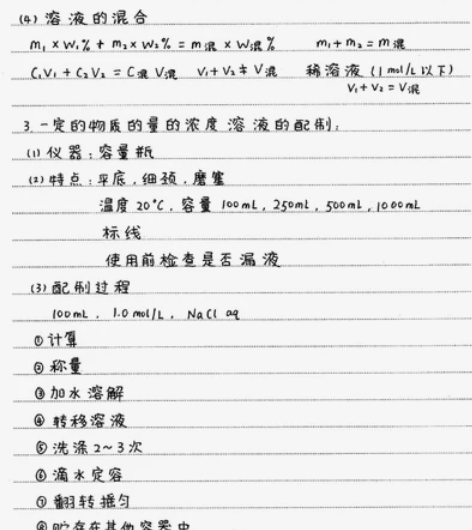 (4) 溶液的混合
m₁ × W₁% + m₂ × W₂% = m混 × W混% m₁ + m₂ = m混
C₁V₁ + C₂V₂ = C混 V混 V₁ + V₂ ≠ V混 稀溶液 (1 mol/L 以下)
V₁ + V₂ = V混
3. 一定的物质的量的浓度溶液的配制:
(1) 仪器: 容量瓶
(2) 特点: 平底, 细颈, 磨塞
温度 20°C, 容量 100mL, 250mL, 500mL, 1000mL
标线
使用前检查是否漏液
(3) 配制过程
100mL, 1.0mol/L, NaCl aq
① 计算
② 称量
③ 加水溶解
④ 转移溶液
⑤ 洗涤 2~3 次
⑥ 滴水定容
⑦ 翻转摇匀
⑧ 贮存在其他容器中